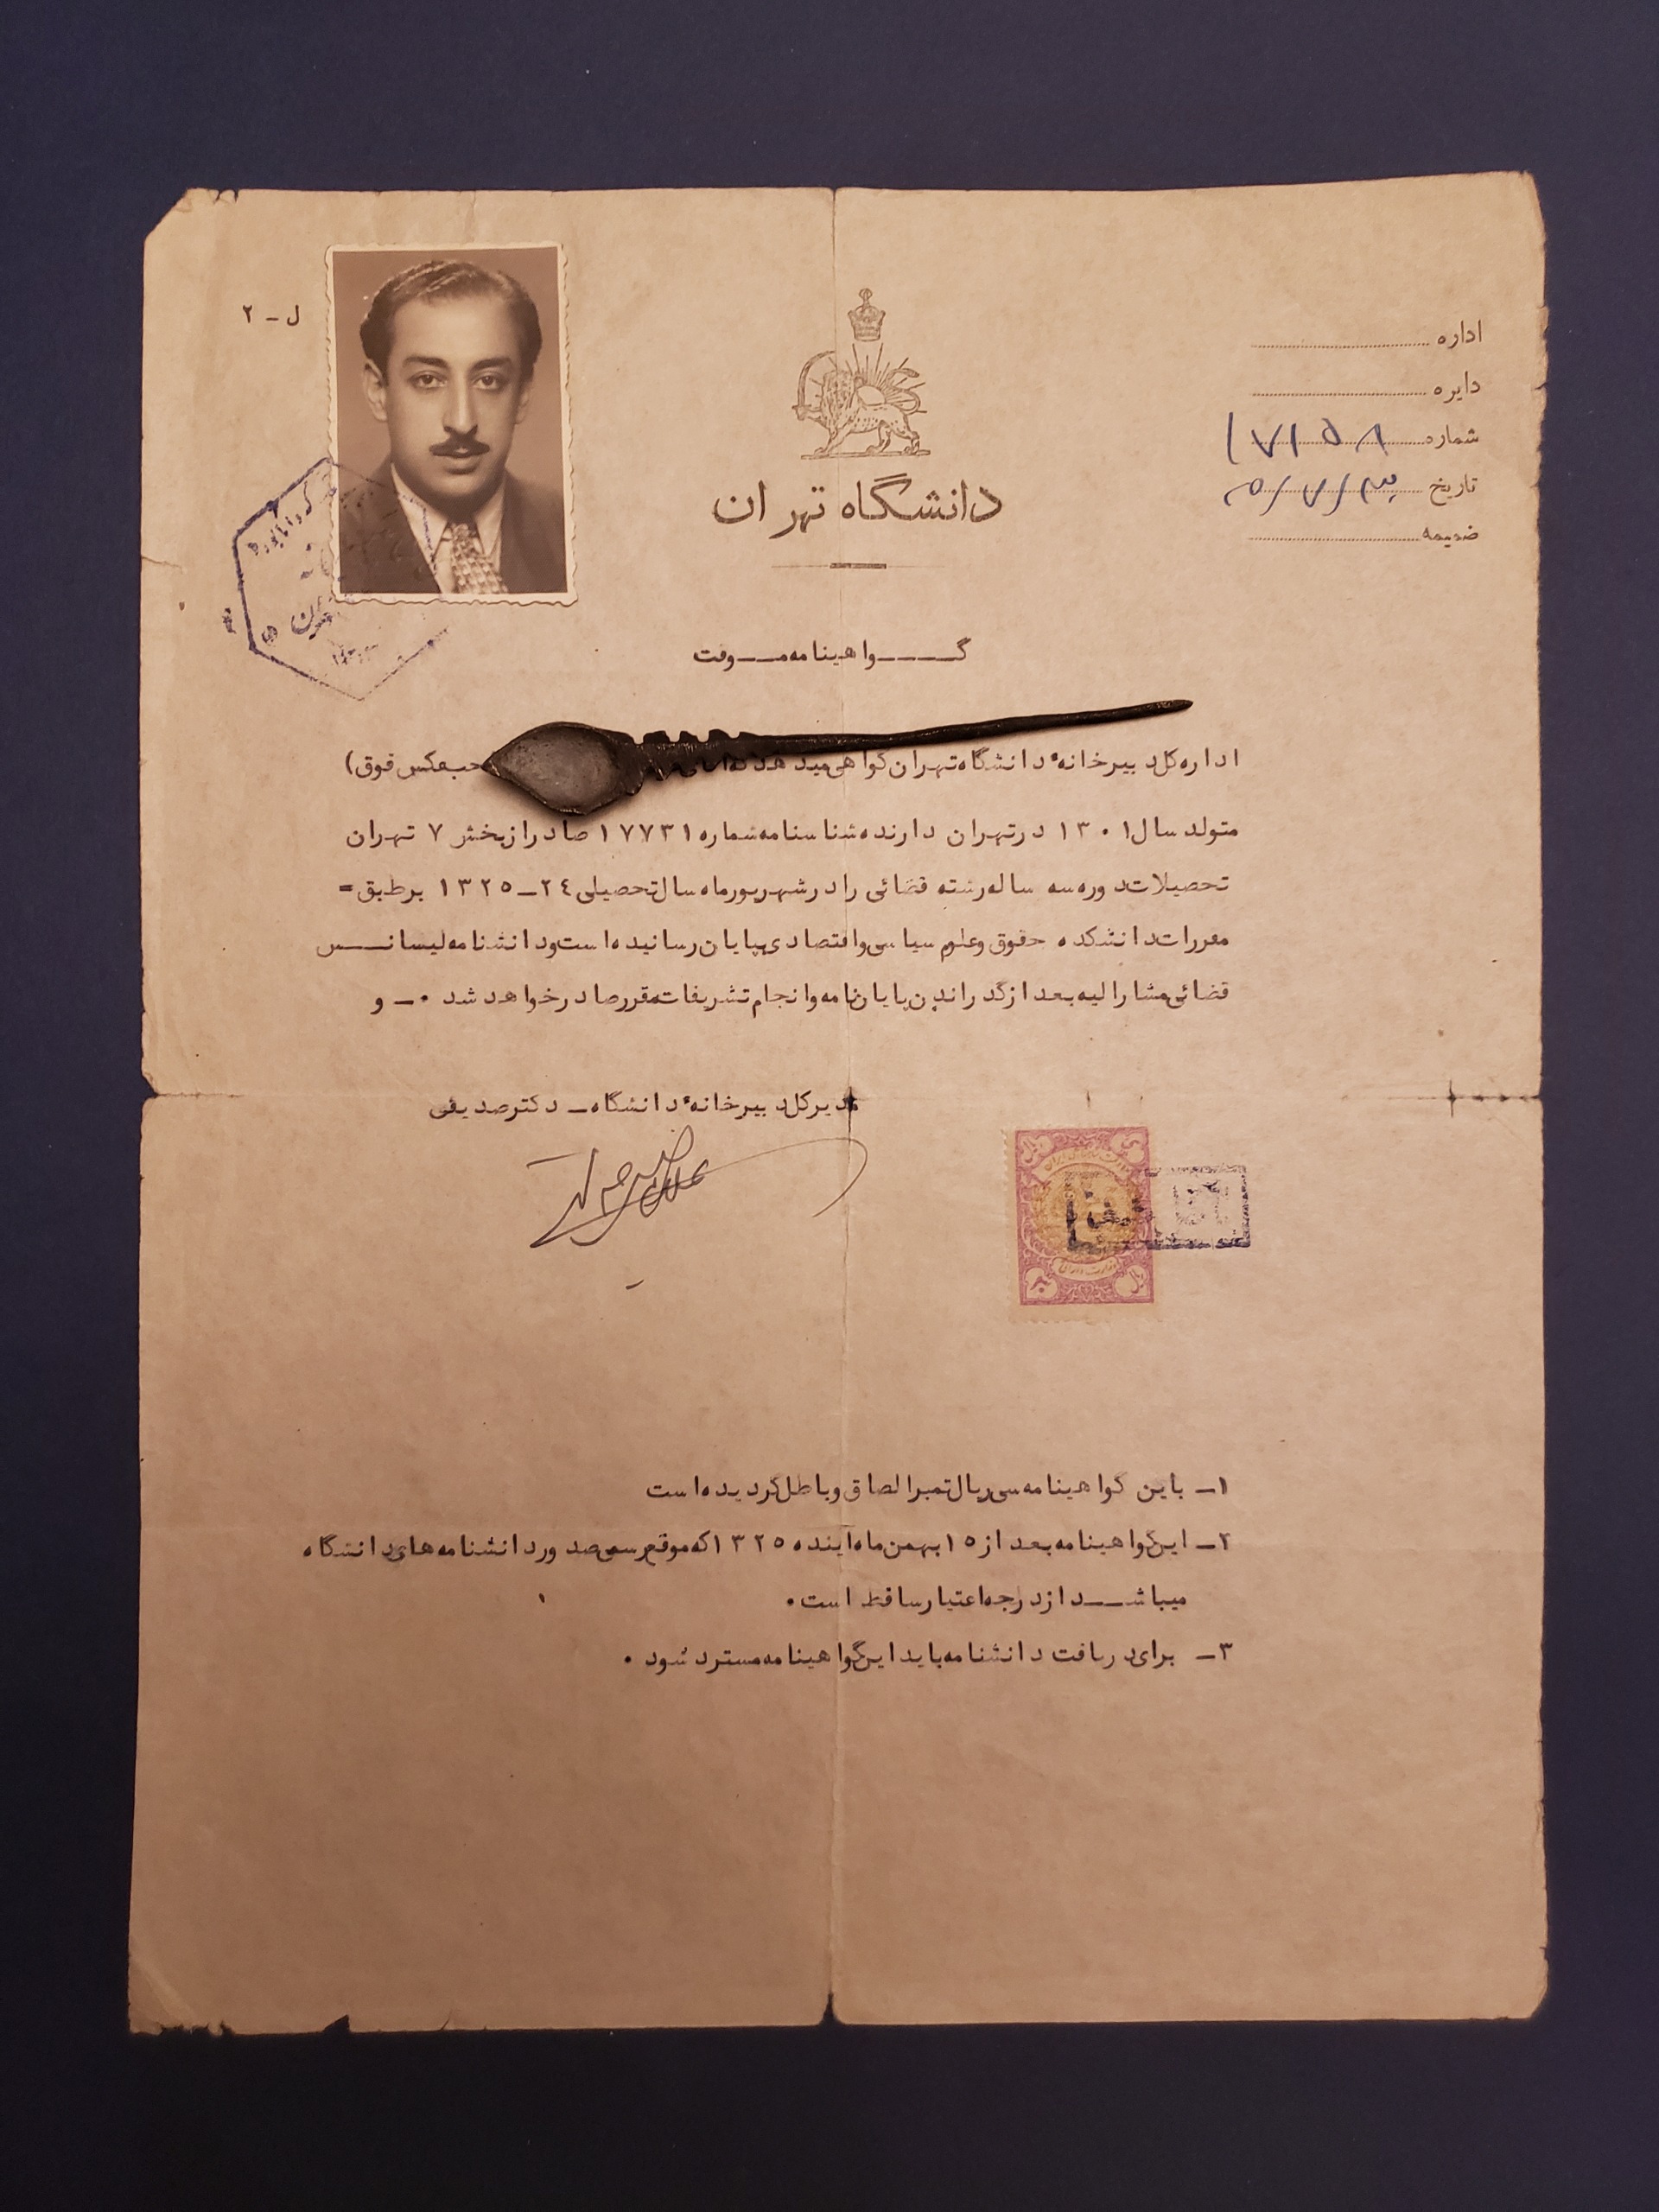 ل – ۲
اداره
دایره
شماره ۱۷۱۵۸
تاریخ
ضمیمه
دانشگاه تهران
گواهینامه موقت
اداره کل دبیرخانهٔ دانشگاه تهران گواهی میدهد که آقای عکس فوق)
متولد سال ۱۳۰۱ در تهران دارنده شناسنامه شماره ۱۷۷۳۱ صادر از بخش ۷ تهران
تحصیلات دوره سه ساله رشته قضائی را در شهریور ماه سال تحصیلی ۲۴–۱۳۲۵ برطبق =
مقررات دانشکده حقوق و علوم سیاسی و اقتصادی بپایان رسانیده است و دانشنامه لیسانس
قضائی مشارالیه بعد از گذراندن پایان نامه و انجام تشریفات مقرر صادر خواهد شد ۰ – و
مدیر کل دبیرخانهٔ دانشگاه – دکتر صدیقی
۱– باین گواهینامه سی ریال تمبر الصاق و باطل گردیده است
۲– این گواهینامه بعد از ۱۵ بهمن ماه آینده ۱۳۲۵ که موقع رسمی صدور دانشنامه های دانشگاه
میباشد از درجه اعتبار ساقط است .
۳– برای دریافت دانشنامه باید این گواهینامه مسترد شود .